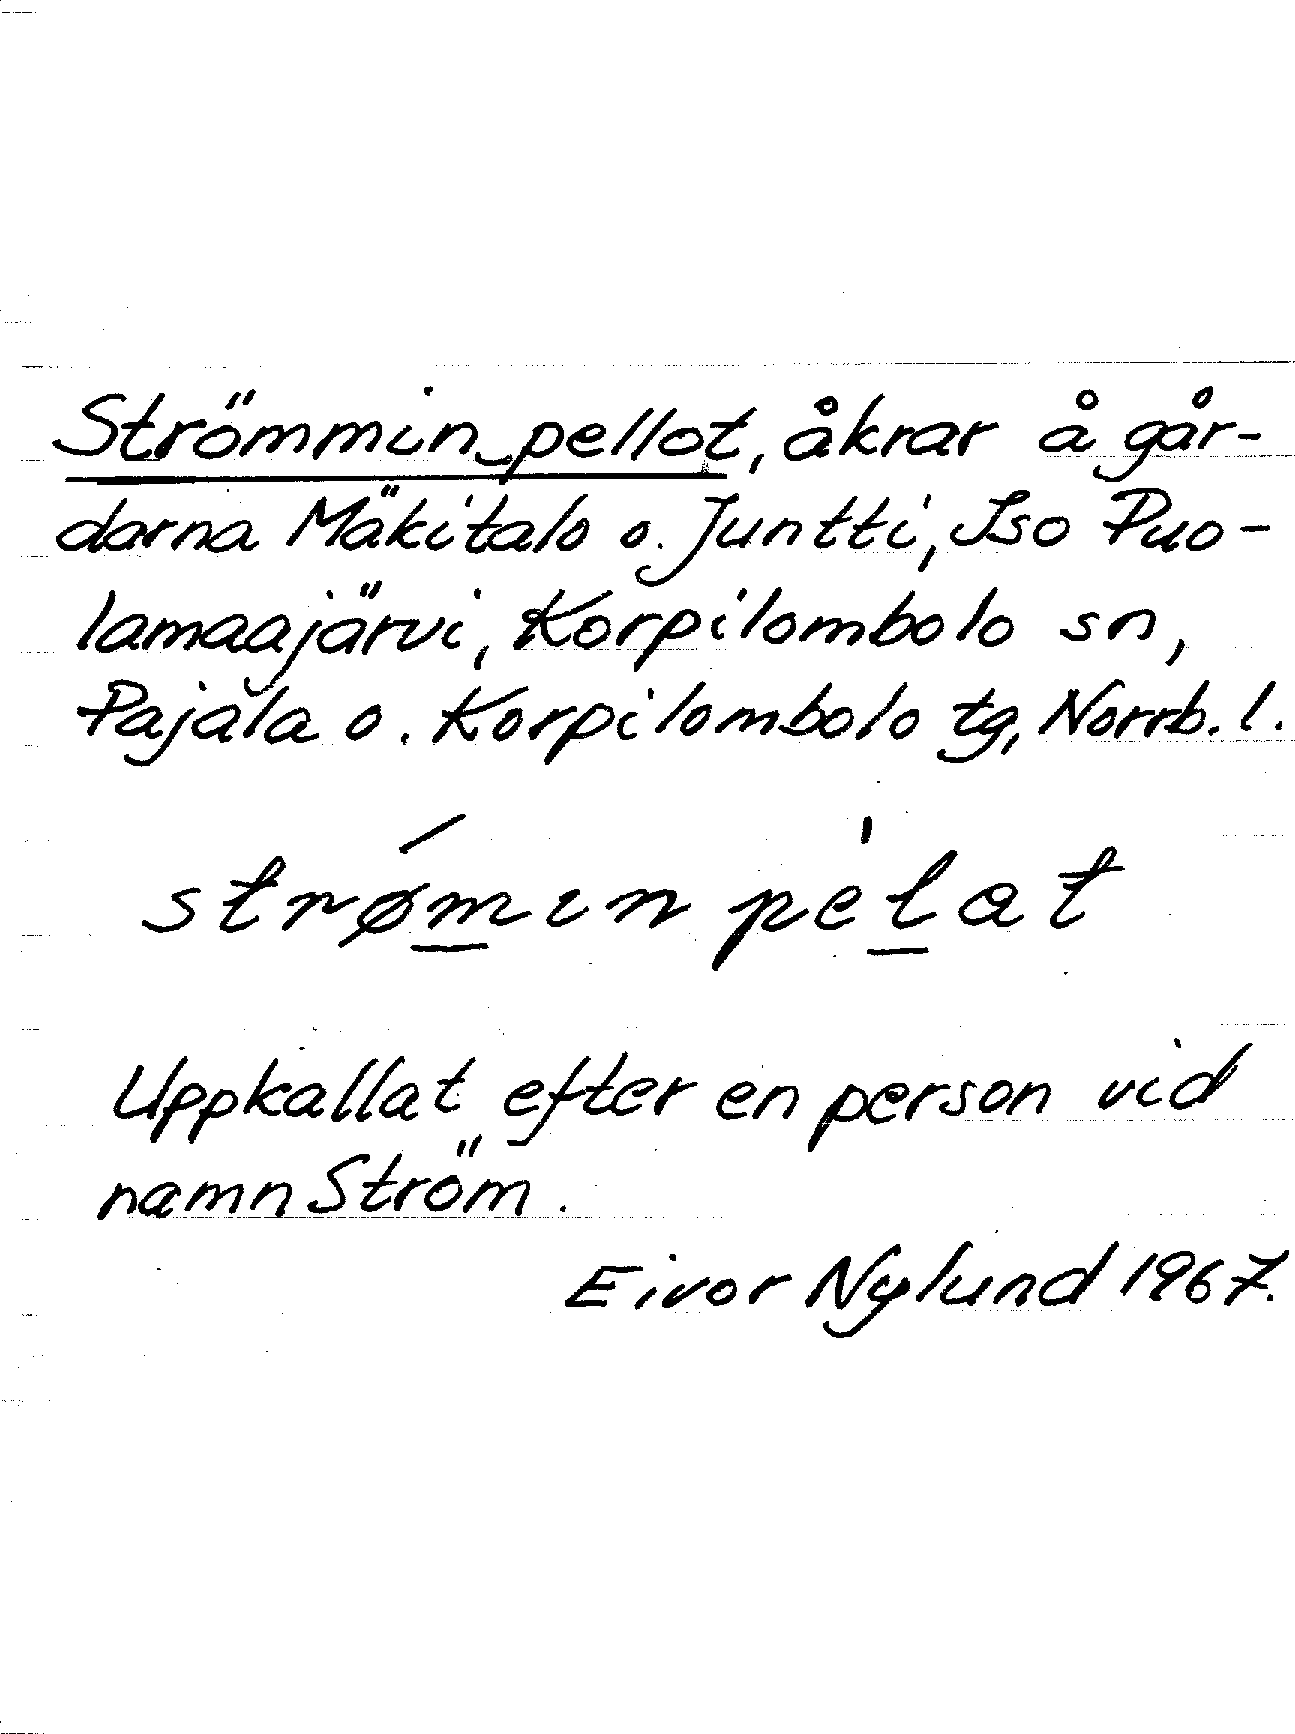 Strömmin pellot, åkrar å går-
darna Mäkitalo o. Juntti, Iso Puo-
lamaajärvi, Korpilombolo sn,
Pajala o. Korpilombolo tg, Norrb. l.
strømɩn pelat
Uppkallat efter en person vid
namn Ström.
Eivor Nylund 1967.